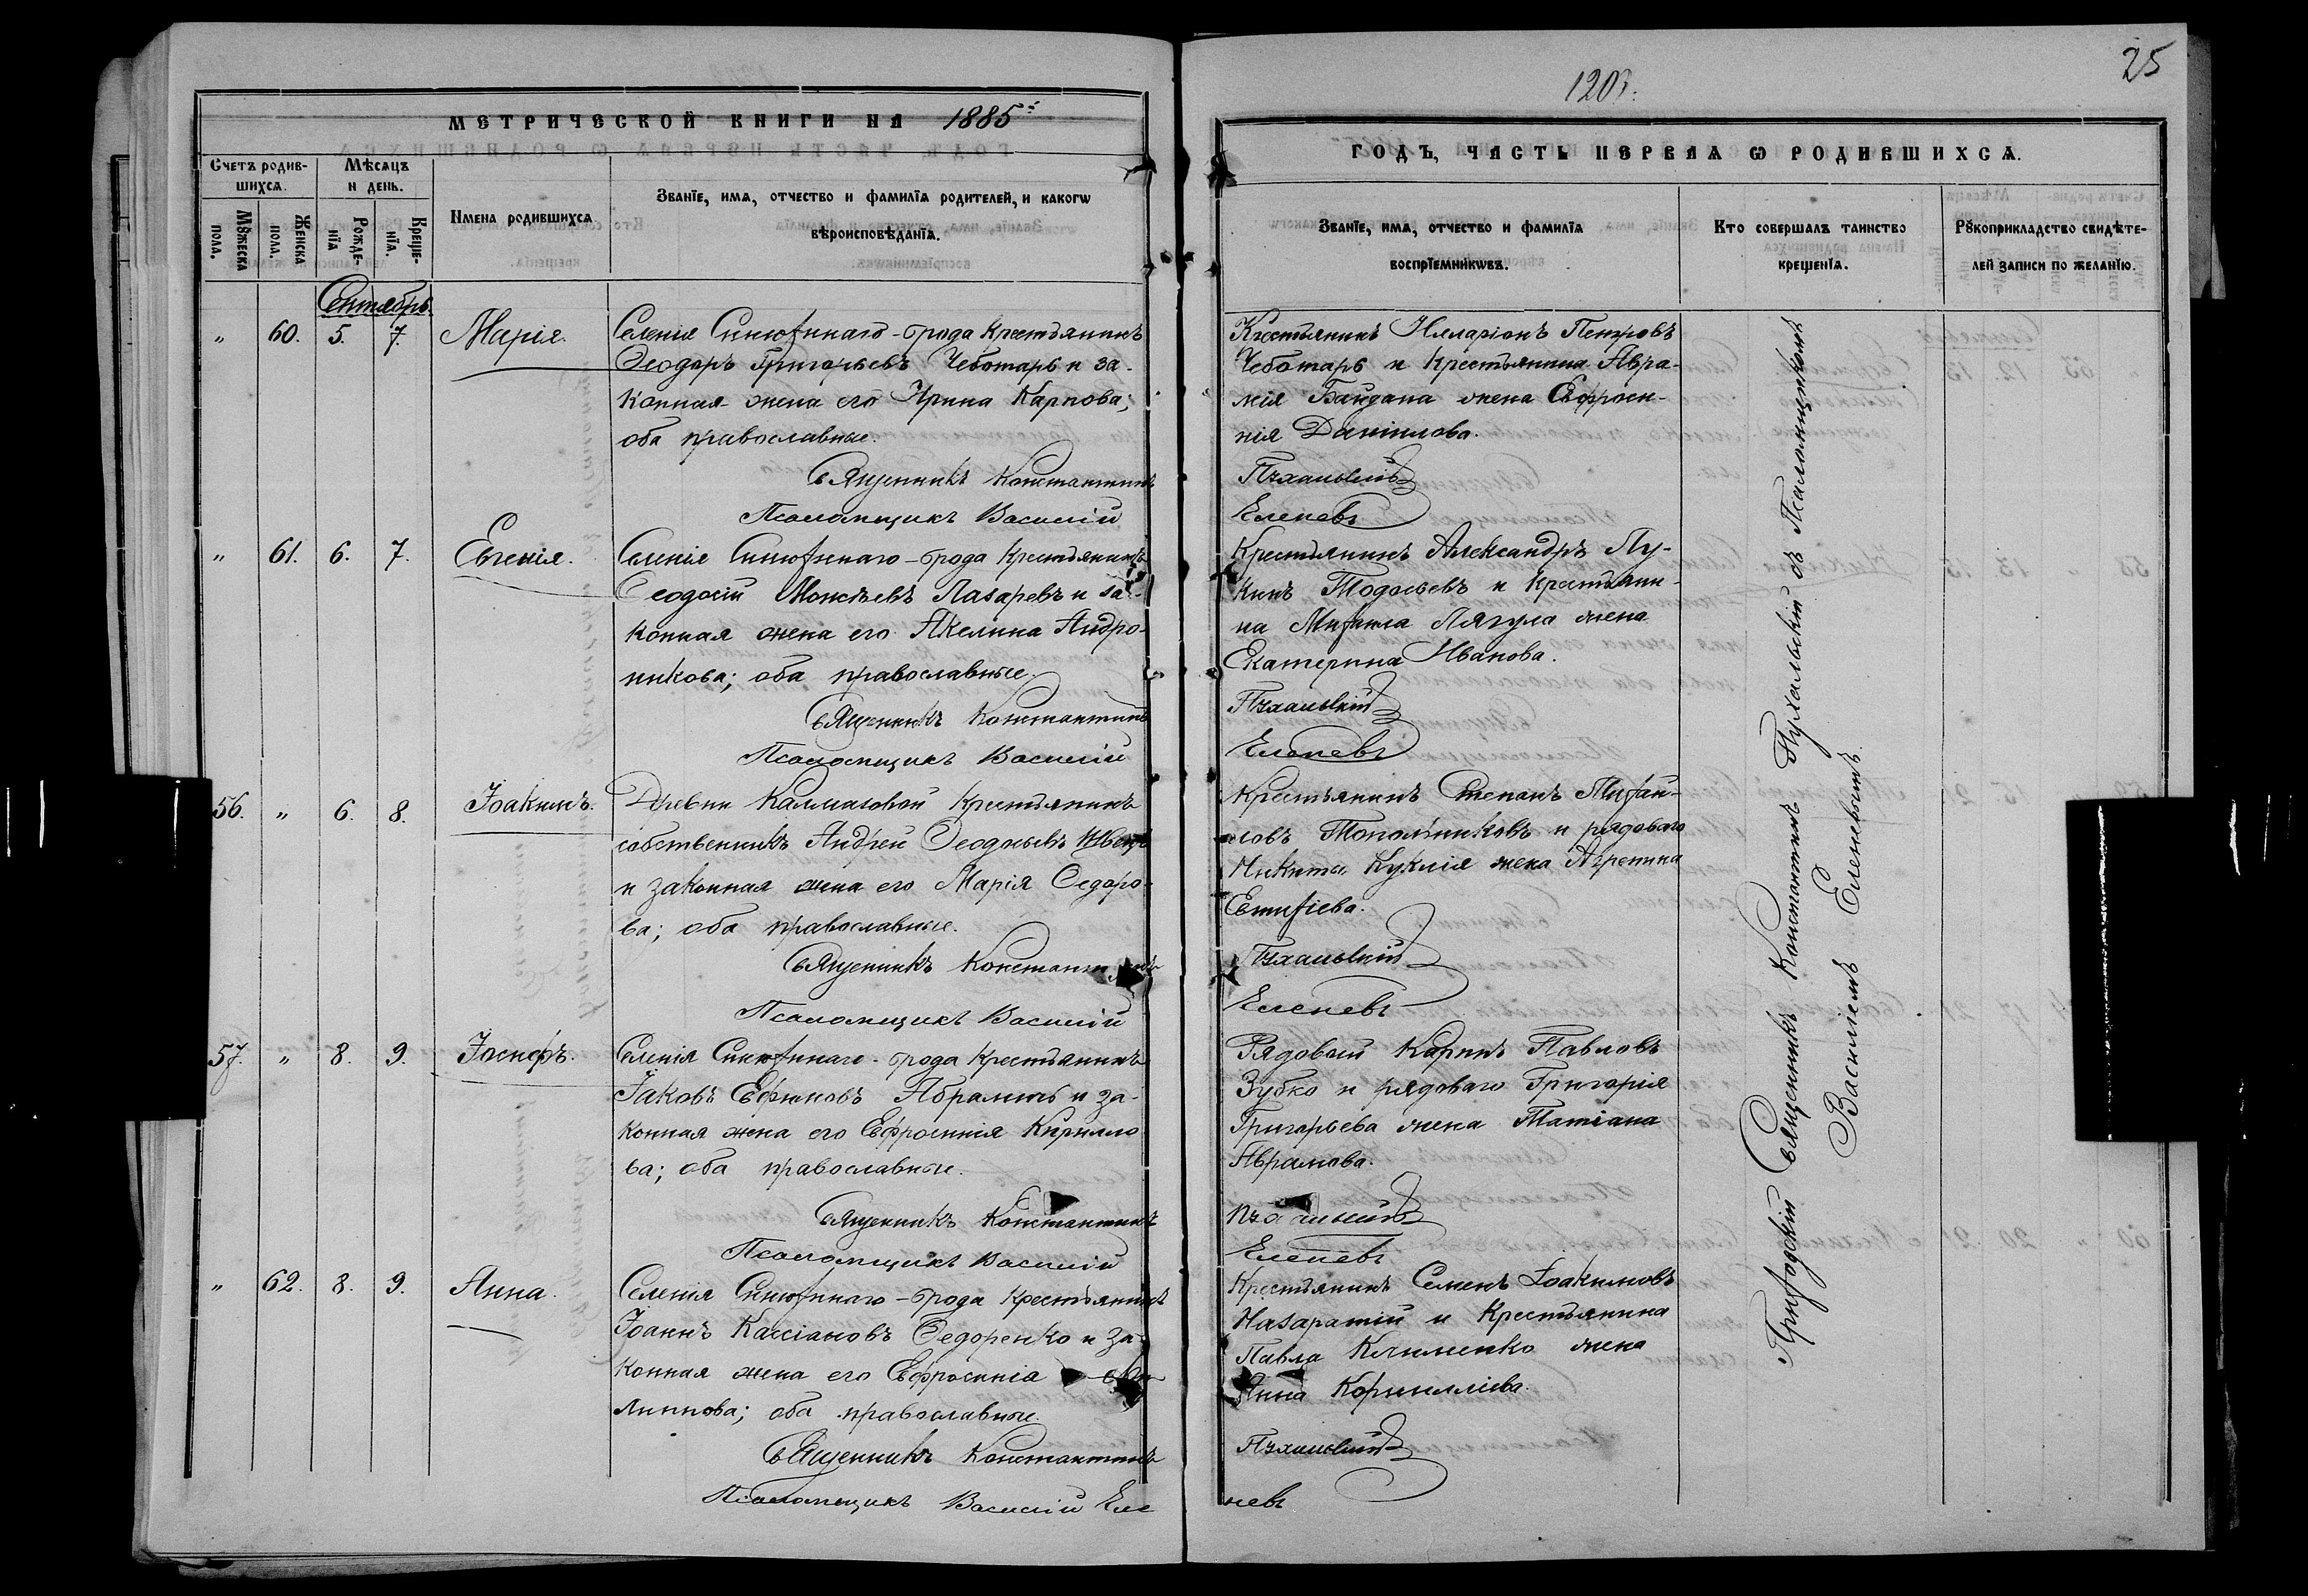 25
120
МЕТРИЧЕСКОЙ КНИГИ НА 1885й
ГОДЪ, ЧАСТЬ ПЕРВАЯ Ѡ РОДИВШИХСѦ.
Счетъ родив-
шихсѧ.
Мѣсѧцъ
и день.
Мꙋжеска
пола.
Женска
пола.
Рожде-
нїѧ
Креще-
нїѧ.
Имена родившихсѧ
Званїе, имѧ, отчество и фамилїѧ родителей, и какогѡ
вѣроисповѣданїѧ.
Званїе, имѧ, отчество и фамилїѧ
воспрїемникѡвъ.
Кто совершалъ таинство
крещенїѧ.
Рꙋкоприкладство свидѣте-
лей записи по желанїю.
Сентябрь.
" 60. 5. 7. Марія. Селенія Синюхинаго-брода Крестьянинъ
Ѳеодоръ Григорьевъ Чеботарь и за-
конная жена его Ирина Карпова;
оба православные.
Священникъ Константинъ
Псаломщикъ Василій
Крестьянинъ Илларіонъ Петровъ
Чеботарь и крестьянина Авра-
мія Байдана жена Евфроси-
нія Даніилова.
Пухальскій
Еленевъ
" 61. 6. 7. Евгенія. Селенія Синюхинаго-брода Крестьянинъ
Ѳеодосій Моисѣевъ Лазаревъ и за-
конная жена его Акелина Андро-
никова; оба православные.
Священникъ Константинъ
Псаломщикъ Василій
Крестьянинъ Александръ Лу-
кинъ Тодосьевъ и крестьяни-
на Михаила Лягула жена
Екатерина Иванова.
Пухальскій
Еленевъ
56. " 6. 8. Іоакимъ. Деревни Калмазовой Крестьянинъ
собственникъ Андрей Ѳеодосьевъ Швецъ
и законная жена его Марія Ѳедоро-
ва; оба православные.
Священникъ Константинъ
Псаломщикъ Василій
Крестьянинъ Степанъ Михай-
ловъ Топольниковъ и рядоваго
Никиты Куклія жена Агрепина
Евтихіева.
Пухальскій
Еленевъ
57. " 8. 9. Іосифъ. Селенія Синюхинаго-брода Крестьянинъ
Іаковъ Ефимовъ и за-
конная жена его Евфросинія Кирилло
ва; оба православные.
Священникъ Константинъ
Псаломщикъ Василій
Рядовый Карпъ Павловъ
Зубко и рядоваго Григорія
Григорьева жена Татіана
Аврамова.
Пухальскій
Еленевъ
" 62. 8. 9. Анна. Селенія Синюхинаго-брода Крестьянинъ
Іоаннъ Кассіановъ Ѳедоренко и за-
конная жена его Евфросинія
липпова; оба православные.
Священникъ Константинъ
Псаломщикъ Василій Еле
Крестьянинъ Семенъ Іоакимовъ
Назаратій и Крестьянина
Павла Клименко жена
Анна Корнилліева.
Пухальскій
невъ
Приходскій Священникъ Константинъ Пухальскій съ Псаломщикомъ
Василіемъ Еленевымъ.